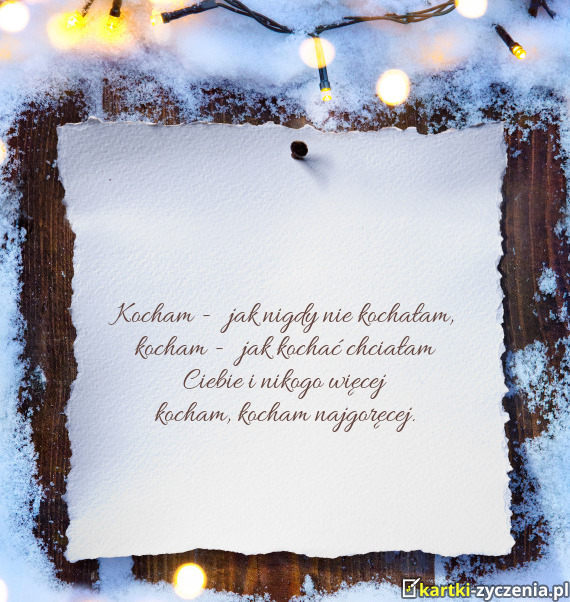 Kocham - jak nigdy nie kochałam,
kocham - jak kochać chciałam
Ciebie i nikogo więcej
kocham, kocham najgoręcej.
kartki-zyczenia.pl